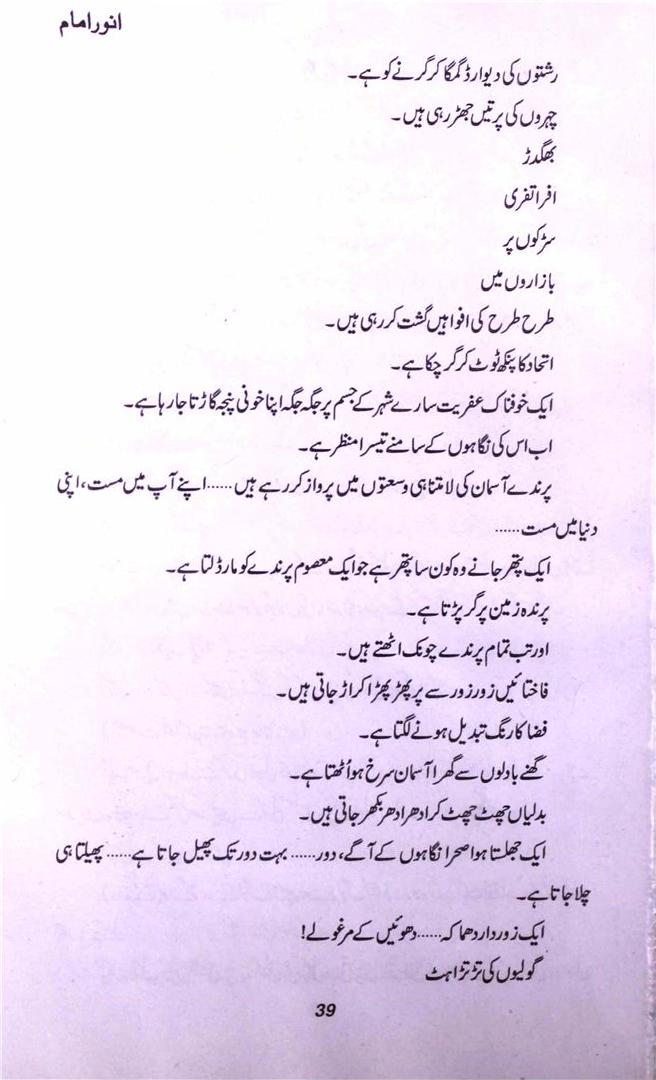 انور امام
رشتوں کی دیوار ڈگمگا کر گرنے کو ہے۔
چہروں کی پرتیں جھڑ رہی ہیں۔
بھگدڑ
افراتفری
سڑکوں پر
بازاروں میں
طرح طرح کی افواہیں گشت کر رہی ہیں۔
اتحاد کا پنکھ ٹوٹ کر گر چکا ہے۔
ایک خوفناک عفریت سارے شہر کے جسم پر جگہ جگہ اپنا خونی پنجہ گاڑتا جا رہا ہے۔
اب اس کی نگاہوں کے سامنے تیسرا منظر ہے۔
پرندے آسمان کی لامتناہی وسعتوں میں پرواز کر رہے ہیں……اپنے آپ میں مست، اپنی
دنیا میں مست……
ایک پتھر جانے وہ کون سا پتھر ہے جو ایک معصوم پرندے کو مار ڈالتا ہے۔
پرندہ زمین پر گر پڑتا ہے۔
اور تب تمام پرندے چونک اٹھتے ہیں۔
فاختائیں زور زور سے پر پھڑپھڑا کر اڑ جاتی ہیں۔
فضا کا رنگ تبدیل ہونے لگتا ہے۔
گھنے بادلوں سے گھرا آسمان سرخ ہو اُٹھتا ہے۔
بدلیاں چھٹ چھٹ کر ادھر ادھر بکھر جاتی ہیں۔
ایک جھلستا ہوا صحرا نگاہوں کے آگے، دور…… بہت دور تک پھیل جاتا ہے…… پھیلتا ہی
چلا جاتا ہے۔
ایک زوردار دھماکہ……دھوئیں کے مرغولے!
گولیوں کی تڑتڑاہٹ
39